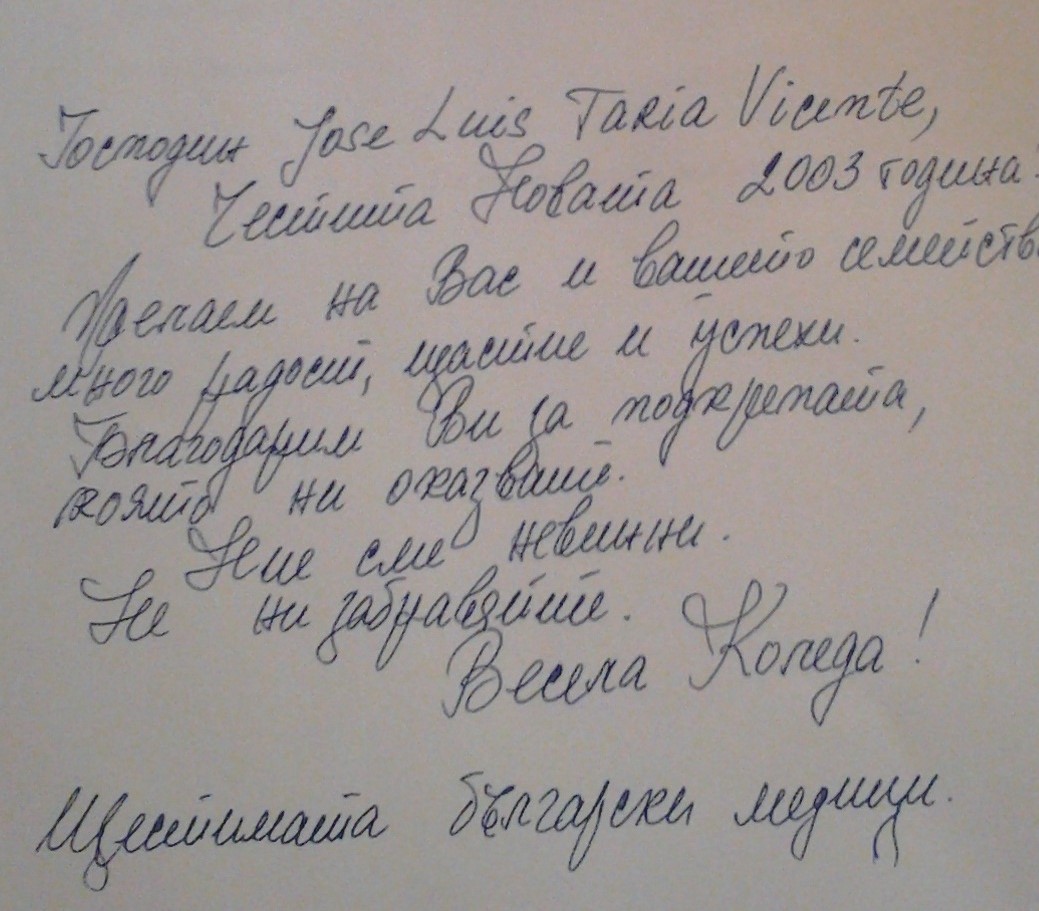 Господин Jose Luis Taria Vicente,
Честита Новата 2003 година!
Желаем на Вас и вашето семейств
много радост, щастие и успехи.
Благодарим Ви за подкрепата,
която ни оказвате.
Ние сме невинни.
Не ни забравяйте.
Весела Коледа!
Шестимата български медици.